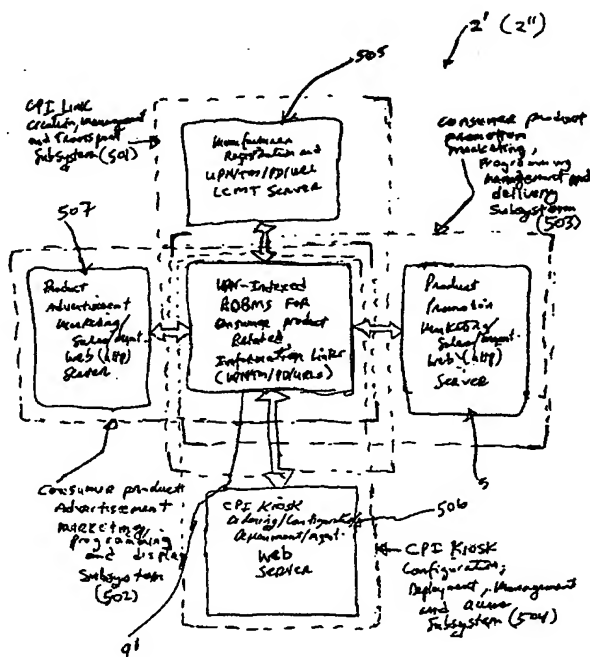 2' (2")
505
CPI Link
Creation, Management
and Transport
Subsystem (501)
Manufacturer
Registration and
UPN/TM/PD/URL
LCMT SERVER
Consumer product
promotion
marketing,
programming
management and
delivery
Subsystem
(503)
507
Product
Advertisement
Marketing/
Sales/mgmt.
Web (http)
Server
UPN-Indexed
RDBMS FOR
Consumer product
Related
Information Links
(UPN/TM/PD/URLs)
Product
Promotion
Marketing/
Sales/mgmt.
Web (http)
SERVER
Consumer product
Advertisement
marketing,
programming
and display
Subsystem
(502)
CPI Kiosk
Ordering/Configuration/
Deployment/Mgmt.
Web
SERVER
506
5
CPI Kiosk
Configuration,
Deployment, Management
and
Subsystem (504)
9'